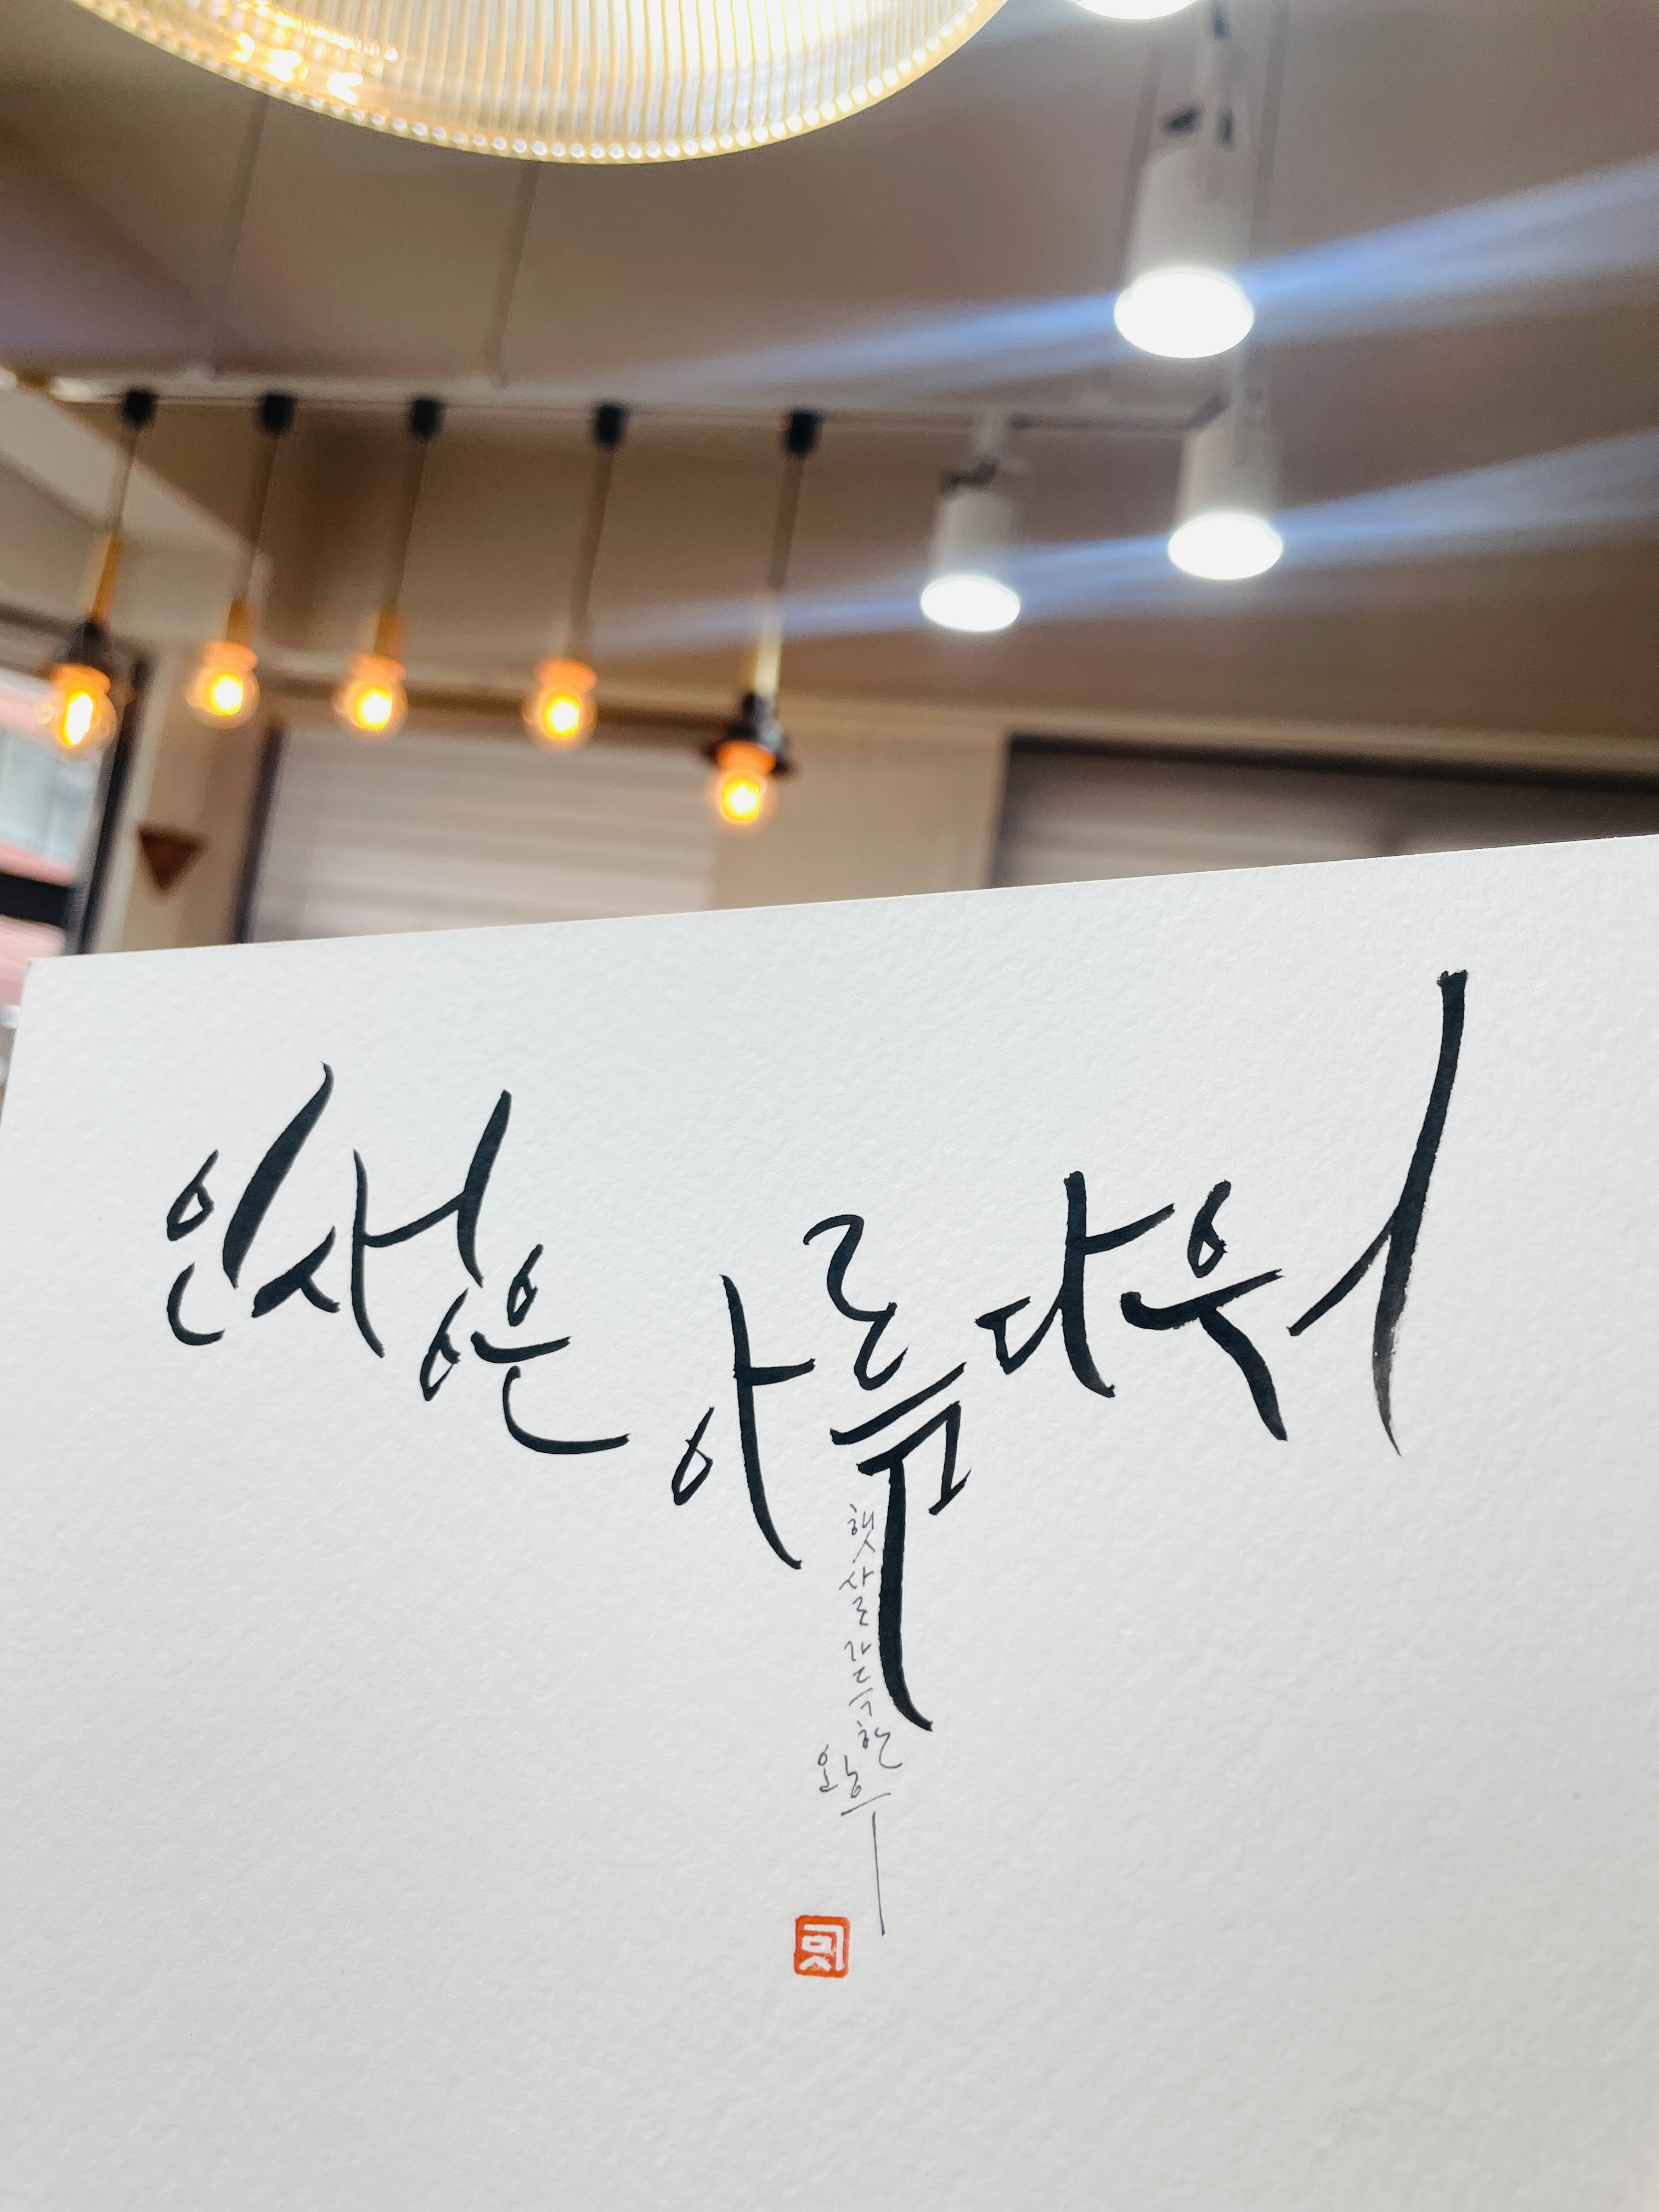 인생은 아름다워
햇살 가득한
오후